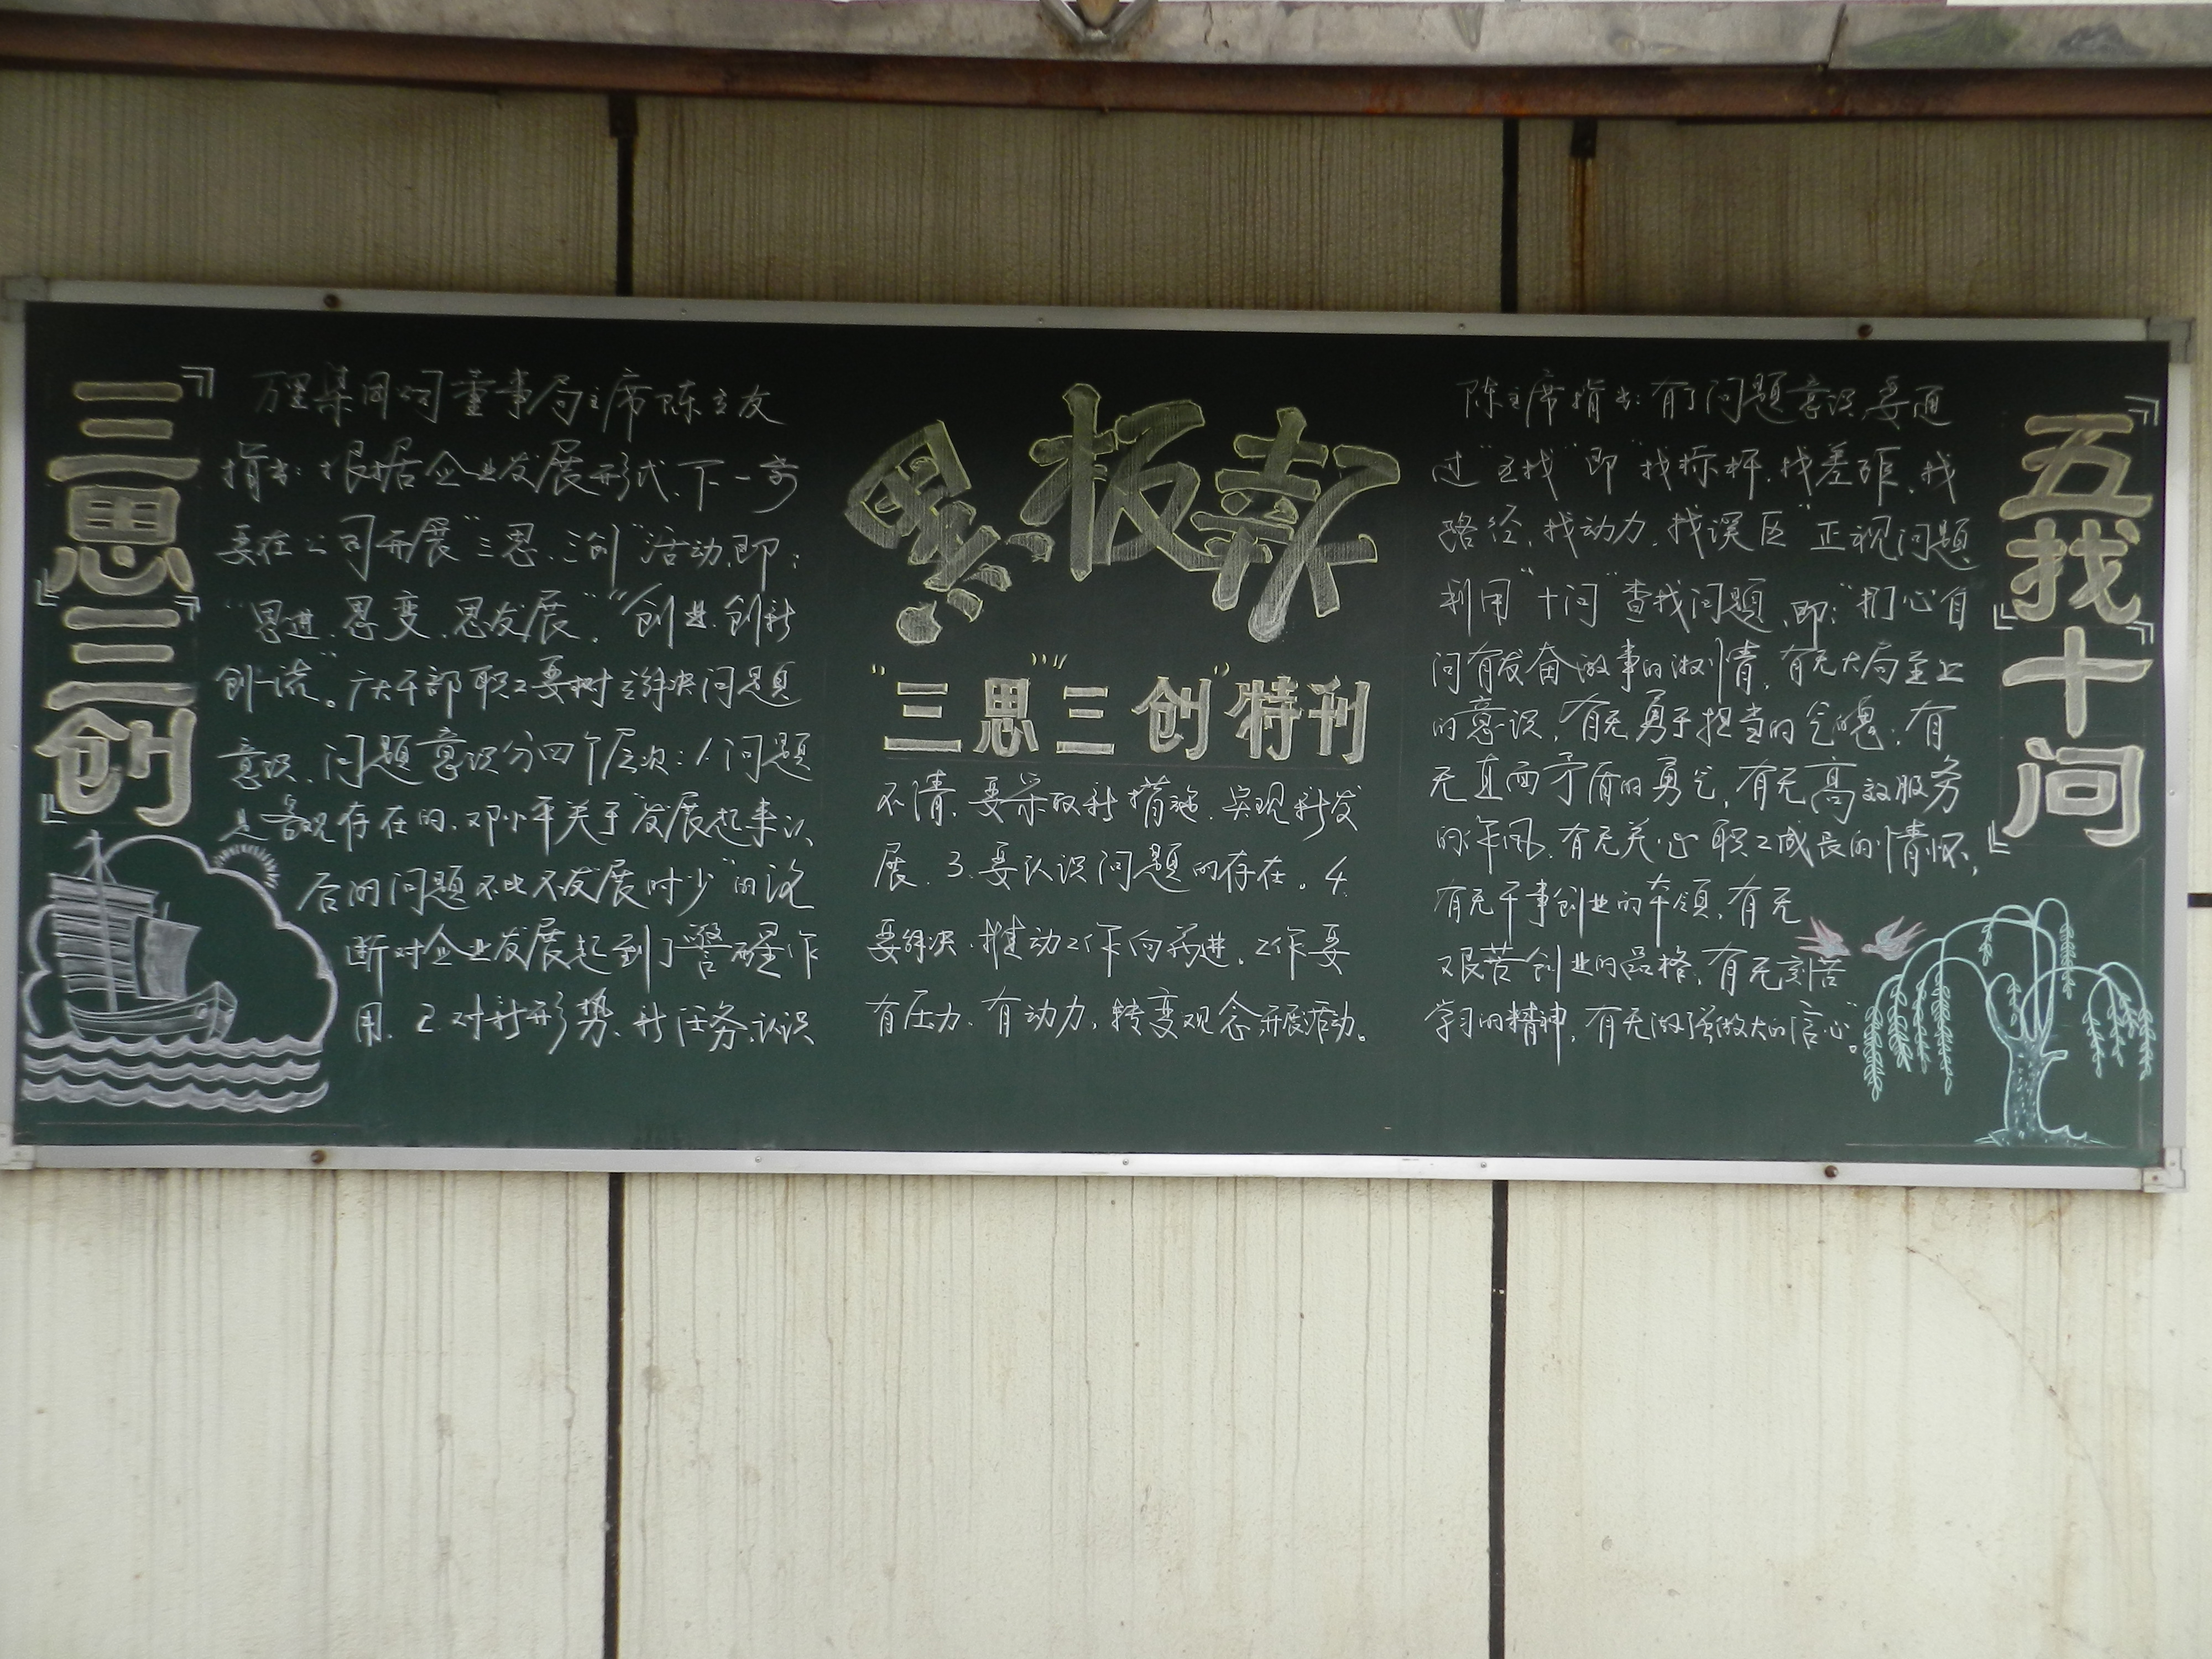 三思三创
万里集团公司董事局主席陈立友
指出：根据企业发展形式、下一步
要在公司开展“三思、三创”活动，即：
“思进、思变、思发展”，“创业、创新
创一流”。广大干部职工要树立解决问题
意识、问题意识分四个层次：1、问题
是客观存在的、邓小平关于“发展起来以
后的问题不比不发展时少”的论
断对企业发展起到了警醒作
用、2、对新形势、新任务、认识
黑板报
“三思”“三创”特刊
不清、要采取新措施、实现新发
展、3、要认识问题的存在。4、
要解决、推动工作向前进、工作要
有压力、有动力，转变观念，开展活动。
陈主席指出：有了问题意识，要通
过“五找”即“找标杆、找差距、找
路径、找动力、找误区”正视问题
利用“十问”查找问题，即：“扪心自
问有发奋做事的激情，有无大局至上
的意识，有无勇于担当的气魄，有
无直面矛盾的勇气，有无高效服务
的作风、有无关心职工成长的情怀，
有无干事创业的本领，有无
艰苦创业的品格，有无刻苦
学习的精神，有无做强做大的信心”。
五找十问